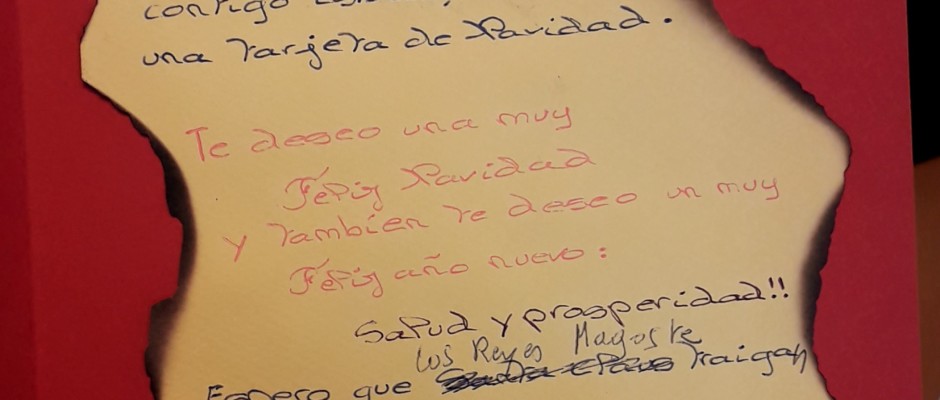 contigo
una tarjeta de Navidad.
Te deseo una muy
Féliz Navidad
y también te deseo un muy
Féliz año nuevo:
Salud y prosperidad!!
los Reyes Magos te
Espero que traigan